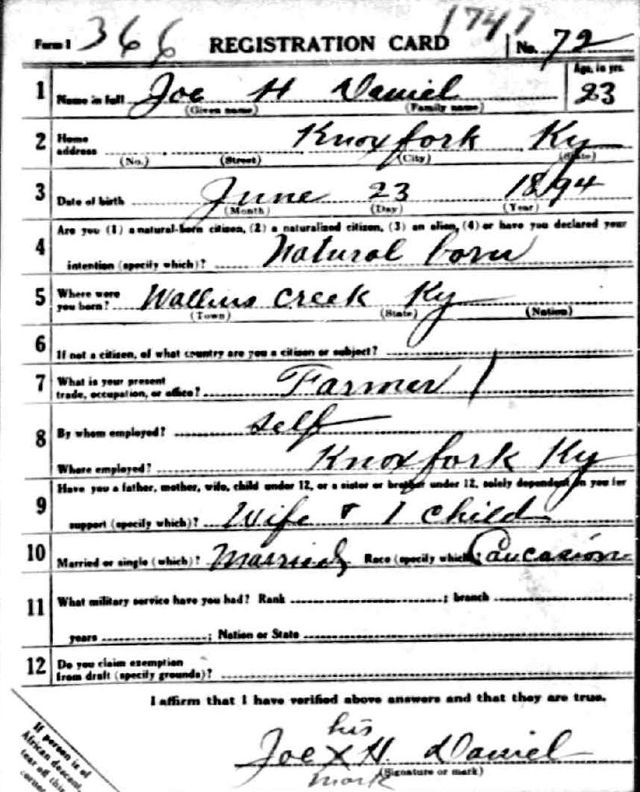 Form 1 366 REGISTRATION CARD 1747 No. 72
1 Name in full Joe H Daniel Age, in yrs. 23
(Given name) (Family name)
2 Home address Knoxfork Ky
(No.) (Street) (City) (State)
3 Date of birth June 23 1894
(Month) (Day) (Year)
Are you (1) a natural-born citizen, (2) a naturalized citizen, (3) an alien, (4) or have you declared your
4 intention (specify which)? Natural born
5 Where were you born? Wallins Creek Ky
(Town) (State) (Nation)
6 If not a citizen, of what country are you a citizen or subject?
7 What is your present trade, occupation, or office? Farmer 1
8 By whom employed? self
Where employed? Knoxfork Ky
9 Have you a father, mother, wife, child under 12, or a sister or brother under 12, solely dependent on you for
support (specify which)? Wife & 1 child
10 Married or single (which)? Married Race (specify which)? Caucasion
11 What military service have you had? Rank ; branch ;
years ; Nation or State
12 Do you claim exemption from draft (specify grounds)?
I affirm that I have verified above answers and that they are true.
his
Joe X H. Daniel
mark (Signature or mark)
If person is of
African descent,
tear off this
corner.